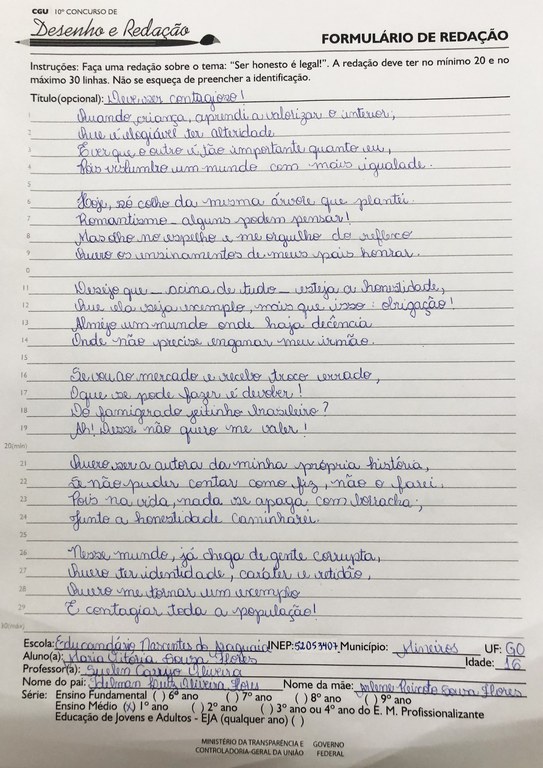 CGU 10º CONCURSO DE
Desenho e Redação
FORMULÁRIO DE REDAÇÃO
Instruções: Faça uma redação sobre o tema: "Ser honesto é legal!". A redação deve ter no mínimo 20 e no
máximo 30 linhas. Não se esqueça de preencher a identificação.
Título(opcional): Deve ser contagioso!
1 Quando criança, aprendi a valorizar o interior,
2 Que é elogiável ter alteridade
3 E ver que o outro é tão importante quanto eu,
4 Pois vislumbro um mundo com mais igualdade.
5
6 Hoje, só colho da mesma árvore que plantei.
7 Romantismo - alguns podem pensar!
8 Mas olho no espelho e me orgulho do reflexo
9 Quero os ensinamentos de meus pais honrar.
0
11 Desejo que - acima de tudo - esteja a honestidade,
12 Que ela seja exemplo, mais que isso: obrigação!
13 Almejo um mundo onde haja decência
14 Onde não precise enganar meu irmão.
15
16 Se vou ao mercado e recebo troco errado,
17 O que se pode fazer é devolver!
18 Do famigerado jeitinho brasileiro?
19 Ah! Desse não quero me valer!
20(mín)
21 Quero ser a autora da minha própria história,
22 Se não puder contar como fiz, não o farei.
23 Pois na vida, nada se apaga com borracha;
24 Junto a honestidade caminharei.
25
26 Nesse mundo, já chega de gente corrupta,
27 Quero ter identidade, caráter e retidão,
28 Quero me tornar um exemplo
29 E contagiar toda a população!
30(máx)
Escola: Educandário Nascentes do Araguaia INEP: 52053407 Município: Mineiros UF: GO
Aluno(a): Maria Vitória Souza Flores Idade: 16
Professor(a): Suelen Oliveira
Nome do pai: Oliveira Flores Nome da mãe: Souza Flores
Série: Ensino Fundamental ( ) 6º ano ( ) 7º ano ( ) 8º ano ( ) 9º ano
Ensino Médio (x) 1º ano ( ) 2º ano ( ) 3º ano ou 4º ano do E. M. Profissionalizante
Educação de Jovens e Adultos - EJA (qualquer ano) ( )
MINISTÉRIO DA TRANSPARÊNCIA E GOVERNO
CONTROLADORIA-GERAL DA UNIÃO FEDERAL